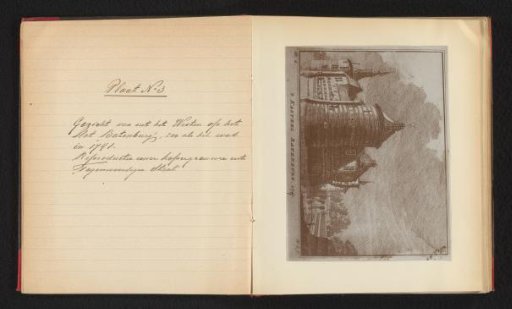 Plaat No 3
Gezicht van uit het Westen op het
Slot Batenburg, zoo als het was
in 1781.
Reproductie eener kopergravure uit
't Kasteel Batenburg